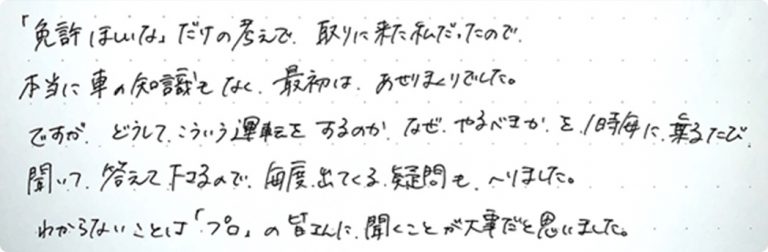 「免許ほしいな」だけの考えで、取りに来た私だったので、
本当に車の知識もなく、最初は、あせりまくりでした。
ですが、どうして、こういう運転をするのか、なぜ、やるべきか、を、1時毎に、乗るたび、
聞いて、答えて下さるので、毎度、出てくる、疑問も、へりました。
わからないことは「プロ」の皆さんに、聞くことが大事だと思いました。